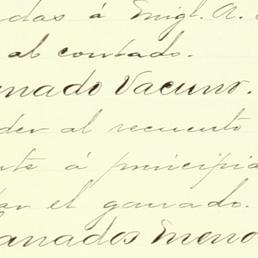 das á Migl. A.
al contado.
anado Vacuno.
der al recuento
nte á principi
ar el ganado.
anados Meno